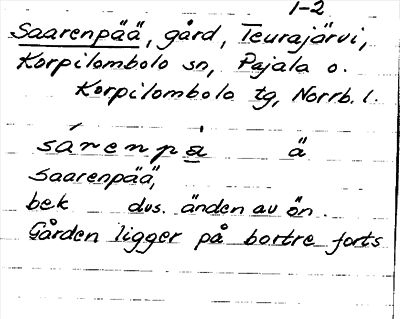 1-2
Saarenpää, gård, Teurajärvi,
Korpilombolo sn, Pajala o.
Korpilombolo tg, Norrb. l.
sárenpä́ ä
Saarenpää,
bek dvs. änden av ön.
Gården ligger på bortre forts